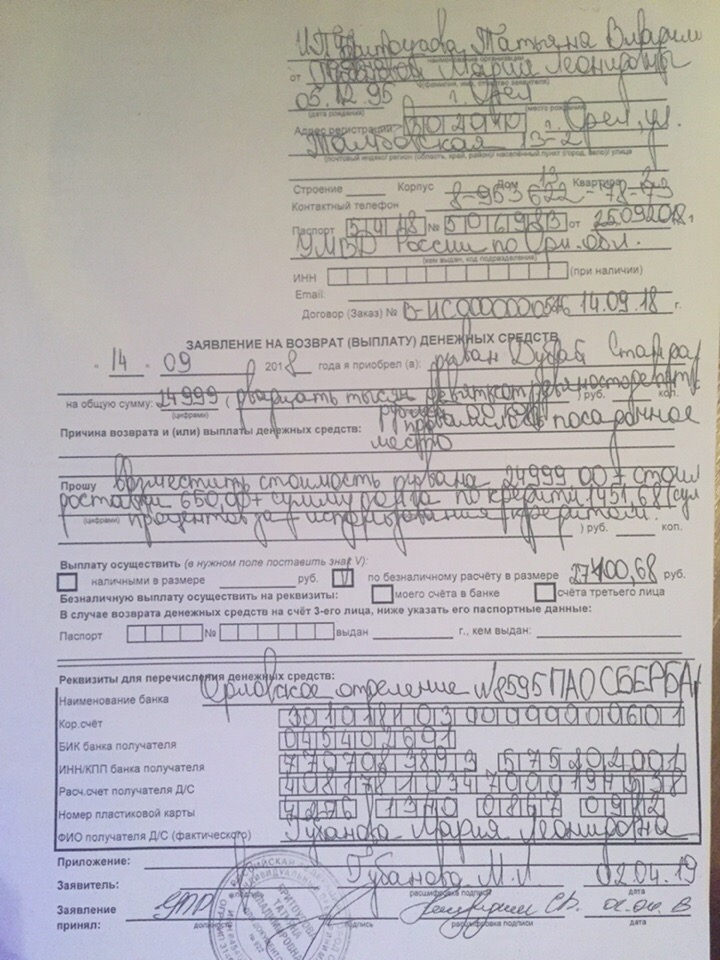 ИП Татьяна
наименование организации
от Губановой Марии Леонидовны
(фамилия, имя, отчество заявителя)
05.12.95 г. Орел
(дата рождения) (место рождения)
Адрес регистрации: г. Орел, ул.
Тамбовская 13-2
(почтовый индекс/ регион (область, край, район)/ населённый пункт (город, село)/ улица
Строение Корпус Дом 13 Квартира 2
Контактный телефон 8-953 622-78-73
Паспорт 5418 № 501698 от 25.09.2018 г
УМВД России по Орл. обл.
(кем выдан, код подразделения)
ИНН (при наличии)
Email:
Договор (Заказ) № 14.09.18 г.
ЗАЯВЛЕНИЕ НА ВОЗВРАТ (ВЫПЛАТУ) ДЕНЕЖНЫХ СРЕДСТВ
" 14 " 09 2018 года я приобрел (а): диван Дубай
на общую сумму: 24999 (двадцать тысяч девятьсот девяносто девять ) руб. коп.
(цифрами)
Причина возврата и (или) выплаты денежных средств: провалилось посадочное
место
Прошу возместить стоимость дивана 24999 00 + стоим
доставки 650,00 + сумму по кредиту 1451,68 (сум
(цифрами) процентов за использования кредитом. ) руб. коп.
Выплату осуществить (в нужном поле поставить знак V):
наличными в размере руб. V по безналичному расчёту в размере 27100,68 руб.
Безналичную выплату осуществить на реквизиты: моего счёта в банке счёта третьего лица
В случае возврата денежных средств на счёт 3-его лица, ниже указать его паспортные данные:
Паспорт № выдан г., кем выдан:
Реквизиты для перечисления денежных средств:
Наименование банка Орловское отделение №8595 ПАО СБЕРБА
Кор.счёт 30101810300000000601
БИК банка получателя 045402601
ИНН/КПП банка получателя 7707083893 575202001
Расч.счет получателя Д/С
Номер пластиковой карты 4276 1340 0867 0982
ФИО получателя Д/С (фактического) Губанова Мария Леонидовна
Приложение:
Заявитель: Губанова М.Л 02.04.19
подпись расшифровка подписи дата
Заявление
принял:
должность подпись расшифровка подписи дата
КРИТОУЗОВА
ТАТЬЯНА
ВЛАДИМИРОВНА